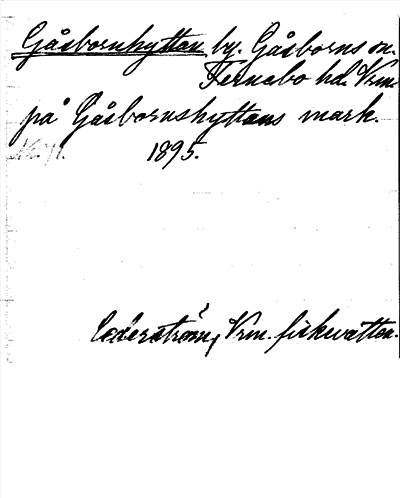 Gåsbornshyttan by. Gåsborns sn.
Fernebo hd. Vrm.
på Gåsbornshyttans mark.
1895.
Cederström, Vrm. fiskvatten.